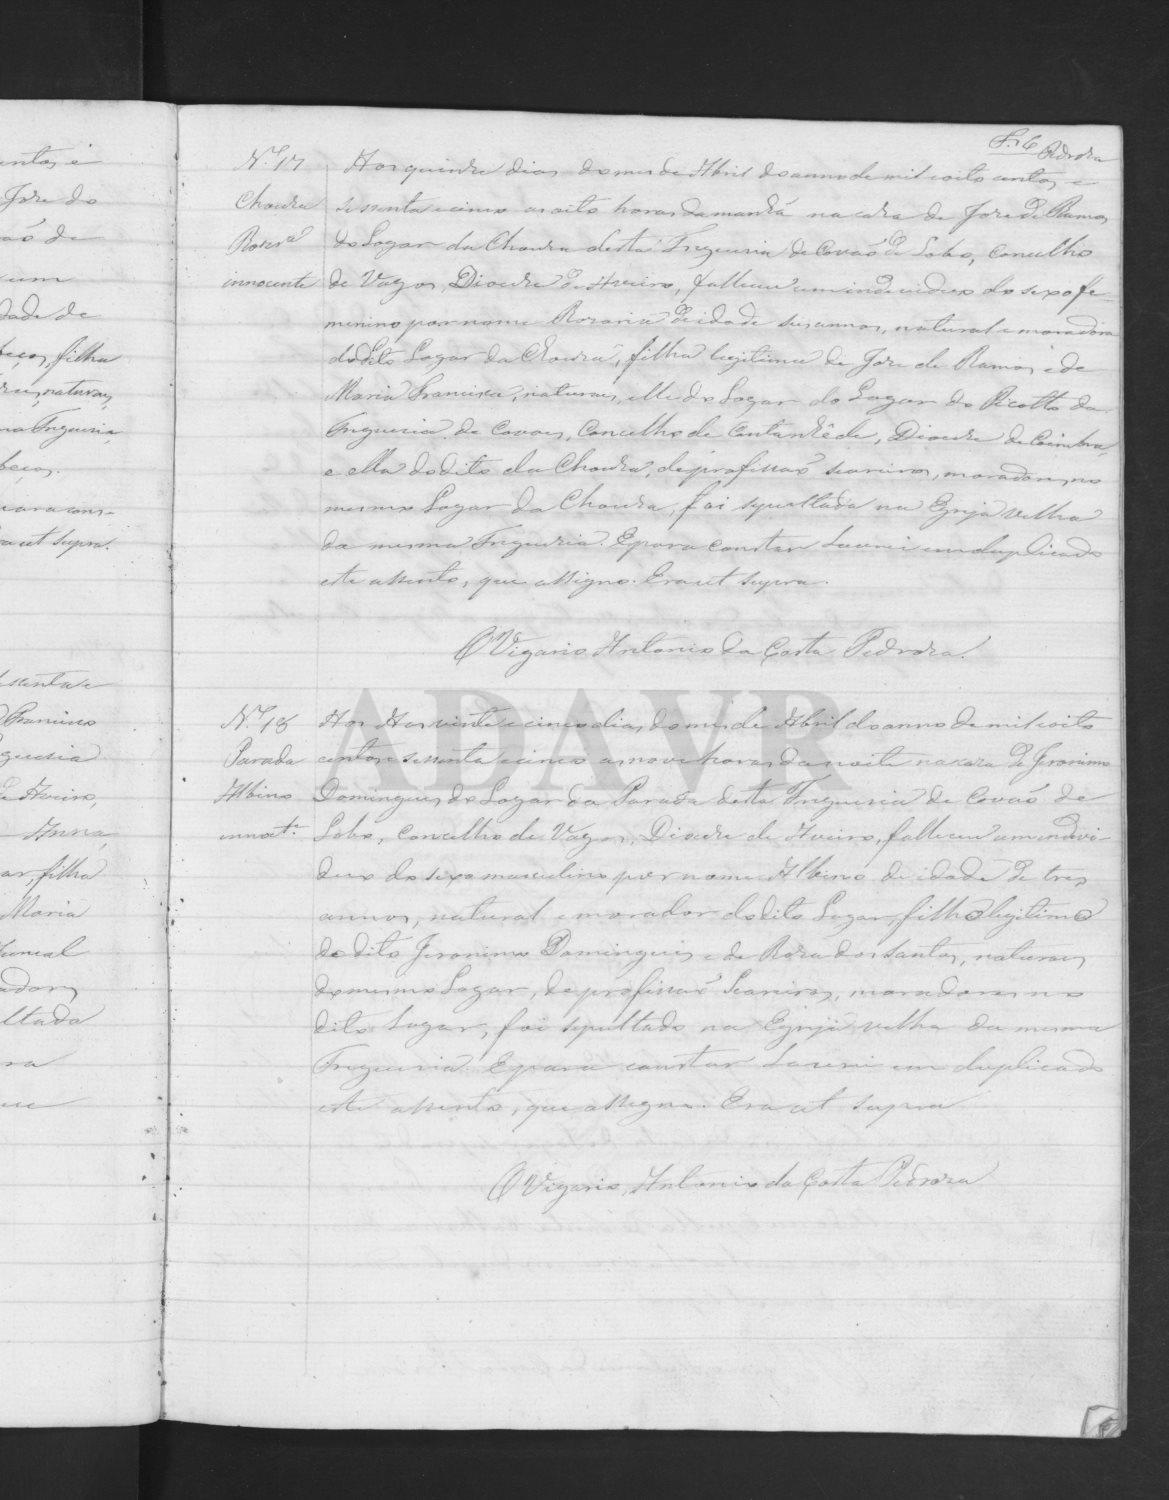 Fl. 6 Pedroza
N.º 17
Choura
innocente
Aos quinze dias do mes de Abril do anno de mil oito centos e
sessenta e cinco as oito horas da manhã na casa de Joze de Ramos
do Logar da Choura desta Freguezia de Covaõ de Lobo, Concelho
de Vagos, Diocese de Aveiro, falleceu um individuo do sexo fe-
menino por nome Rozaria de idade seis annos, natural e moradora
do dito Logar da Choura, filha legitima de Joze de Ramos e de
Maria Francisca, naturaes, elle do Logar do Logar do Picotto da
Freguezia de Covoes, Concelho de Cantanhêde, Diocese de Coimbra,
e ella do dito da Choura, de profissaõ seareiros, moradores no
mesmo Logar da Choura, foi sepultada na Egreja velha
da mesma Freguezia. E para constar lavrei em duplicado
este assento, que assigno. Era ut supra.
O Vigario Antonio da Costa Pedroza.
N.º 18
Parada
Albino
innoct.e
Aos Aos vinte e cinco dias do mes de Abril do anno de mil oito
centos e sessenta e cinco as nove horas da noite na caza de Jeronimo
Domingues do Logar da Parada desta Freguezia de Covaõ de
Lobo, Concelho de Vagos, Diocese de Aveiro, falleceu um indivi-
duo do sexo masculino por nome Albino de idade de tres
annos, natural e morador do dito Logar, filho legitimo
do dito Jeronimo Domingues e de Roza dos Santos, naturaes
do mesmo Logar, de profissaõ Seareiros, moradores no
dito Logar, foi sepultado na Egreja velha da mesma
Freguezia. E para constar lavrei em duplicado
este assento, que assigno. Era ut supra
O Vigario, Antonio da Costa Pedroza
ADAVR